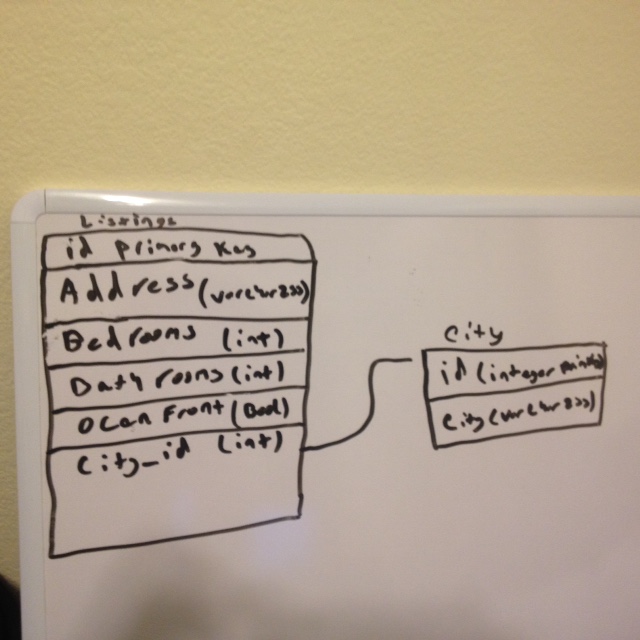 Listings
id primary key
Address (varchar255)
Bedrooms (int)
Bathrooms (int)
Ocan Front (Bool)
City_id (int)
City
id (integer
City (varchar255)